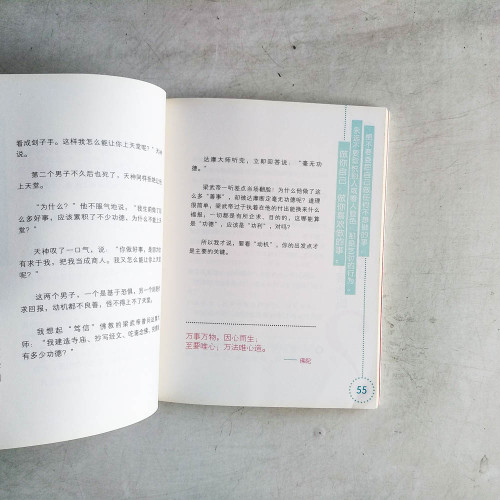 看成刽子手。这样我怎么能让你上天堂呢？”天神
说。
第二个男子不久后也死了，天神同样拒绝让他
上天堂。
“为什么？”他不服气地说，“我生前做了那
么多好事，应该累积了不少功德，为什么不能上天
堂？”
天神叹了一口气，说：“你做好事，是因为你
有求于我，把我当成商人。我又怎么能让你上天堂
呢？”
这两个男子，一个是基于恐惧，另一个则是为
求回报，动机都不良善，怪不得上不了天堂。
我想起“笃信”佛教的梁武帝曾问达摩大
师：“我建造寺庙、抄写经文、吃斋念佛，
有多少功德？”
达摩大师听完，立即回答说：“毫无功
德。”
梁武帝一听差点当场翻脸：为什么他做了这
么多“善事”，却被达摩断定毫无功德呢？道理
很简单，梁武帝过于执着在他的付出能换来什么
福报，一切都是有所企求、目的，这哪能算
是“功德”，应该是“功利”，对吗？
所以我才说，要看“动机”，你的出发点才
是主要的关键。
万事万物。因心而生；
至要唯心；万法唯心造。
做你自己，做你喜欢做的事，
55